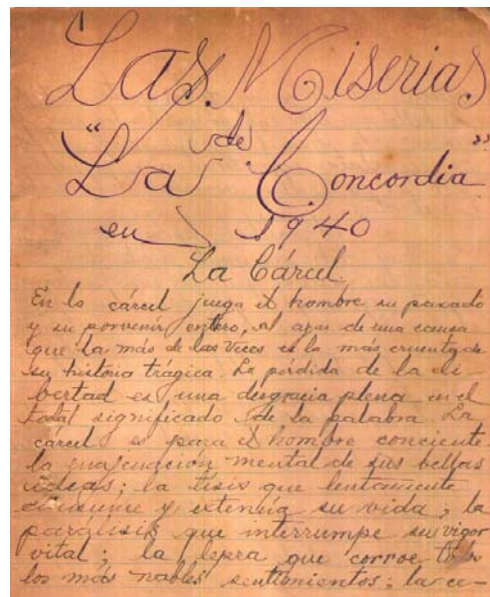 1
Las Miserias
de
"La Concordia"
en 1940
La Cárcel.
En la cárcel juega el hombre su pasado
y su porvenir entero, al azar de una causa
que la más de las veces es la más cruenta de
su historia trágica. La pérdida de la li-
bertad es una desgracia plena en el
total significado de la palabra. La
cárcel es para el hombre conciente
la mental de sus bellas
ideas; la tisis que lentamente
consume y extenúa su vida; la
parálisis que interrumpe su vigor
vital; la lepra que corroe todos
los más nobles sentimientos; la ce-